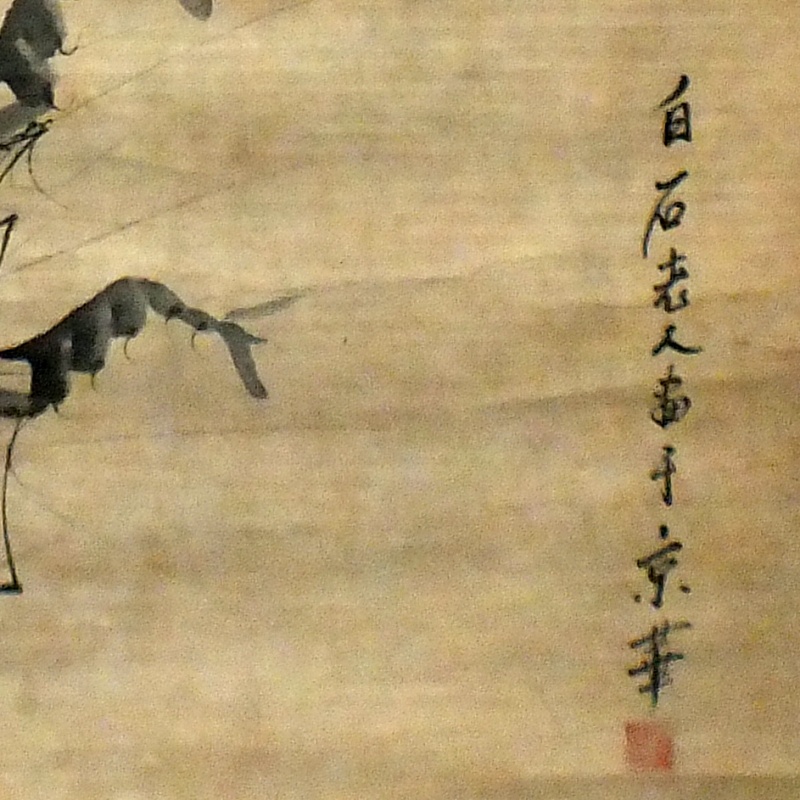 白石老人画于京華